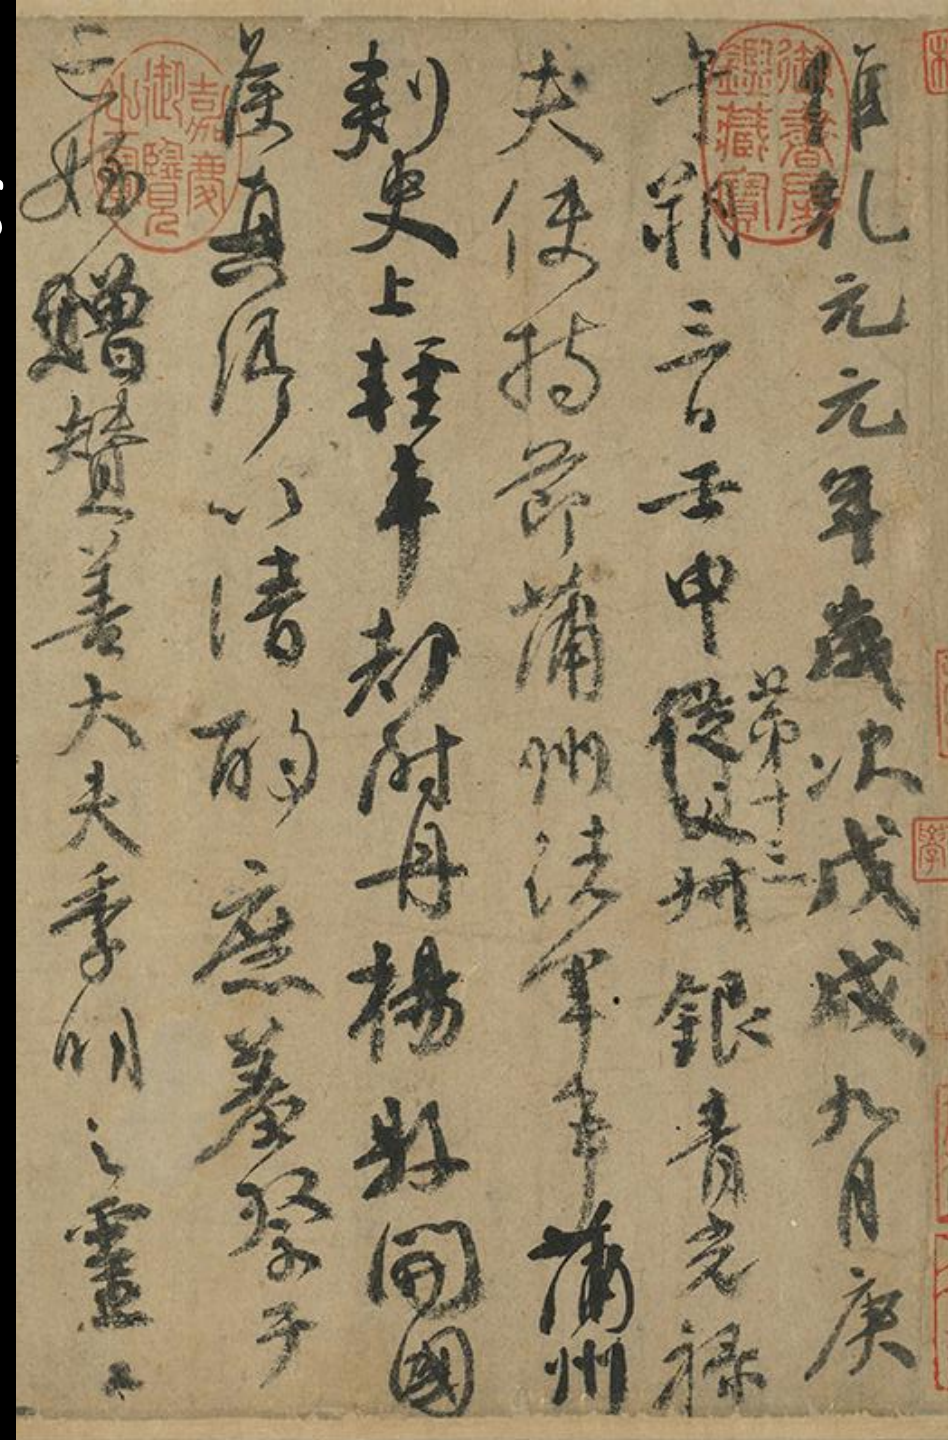 維乾元元年歲次戊戌九月庚
午朔三日壬申第十三從父叔銀青光祿
夫使持節蒲州諸軍事蒲州
刺史上輕車都尉丹楊縣開國
侯真卿以清酌庶羞祭于
亡姪贈贊善大夫季明之靈曰
御書房鑑藏寶
嘉慶御覽之寶